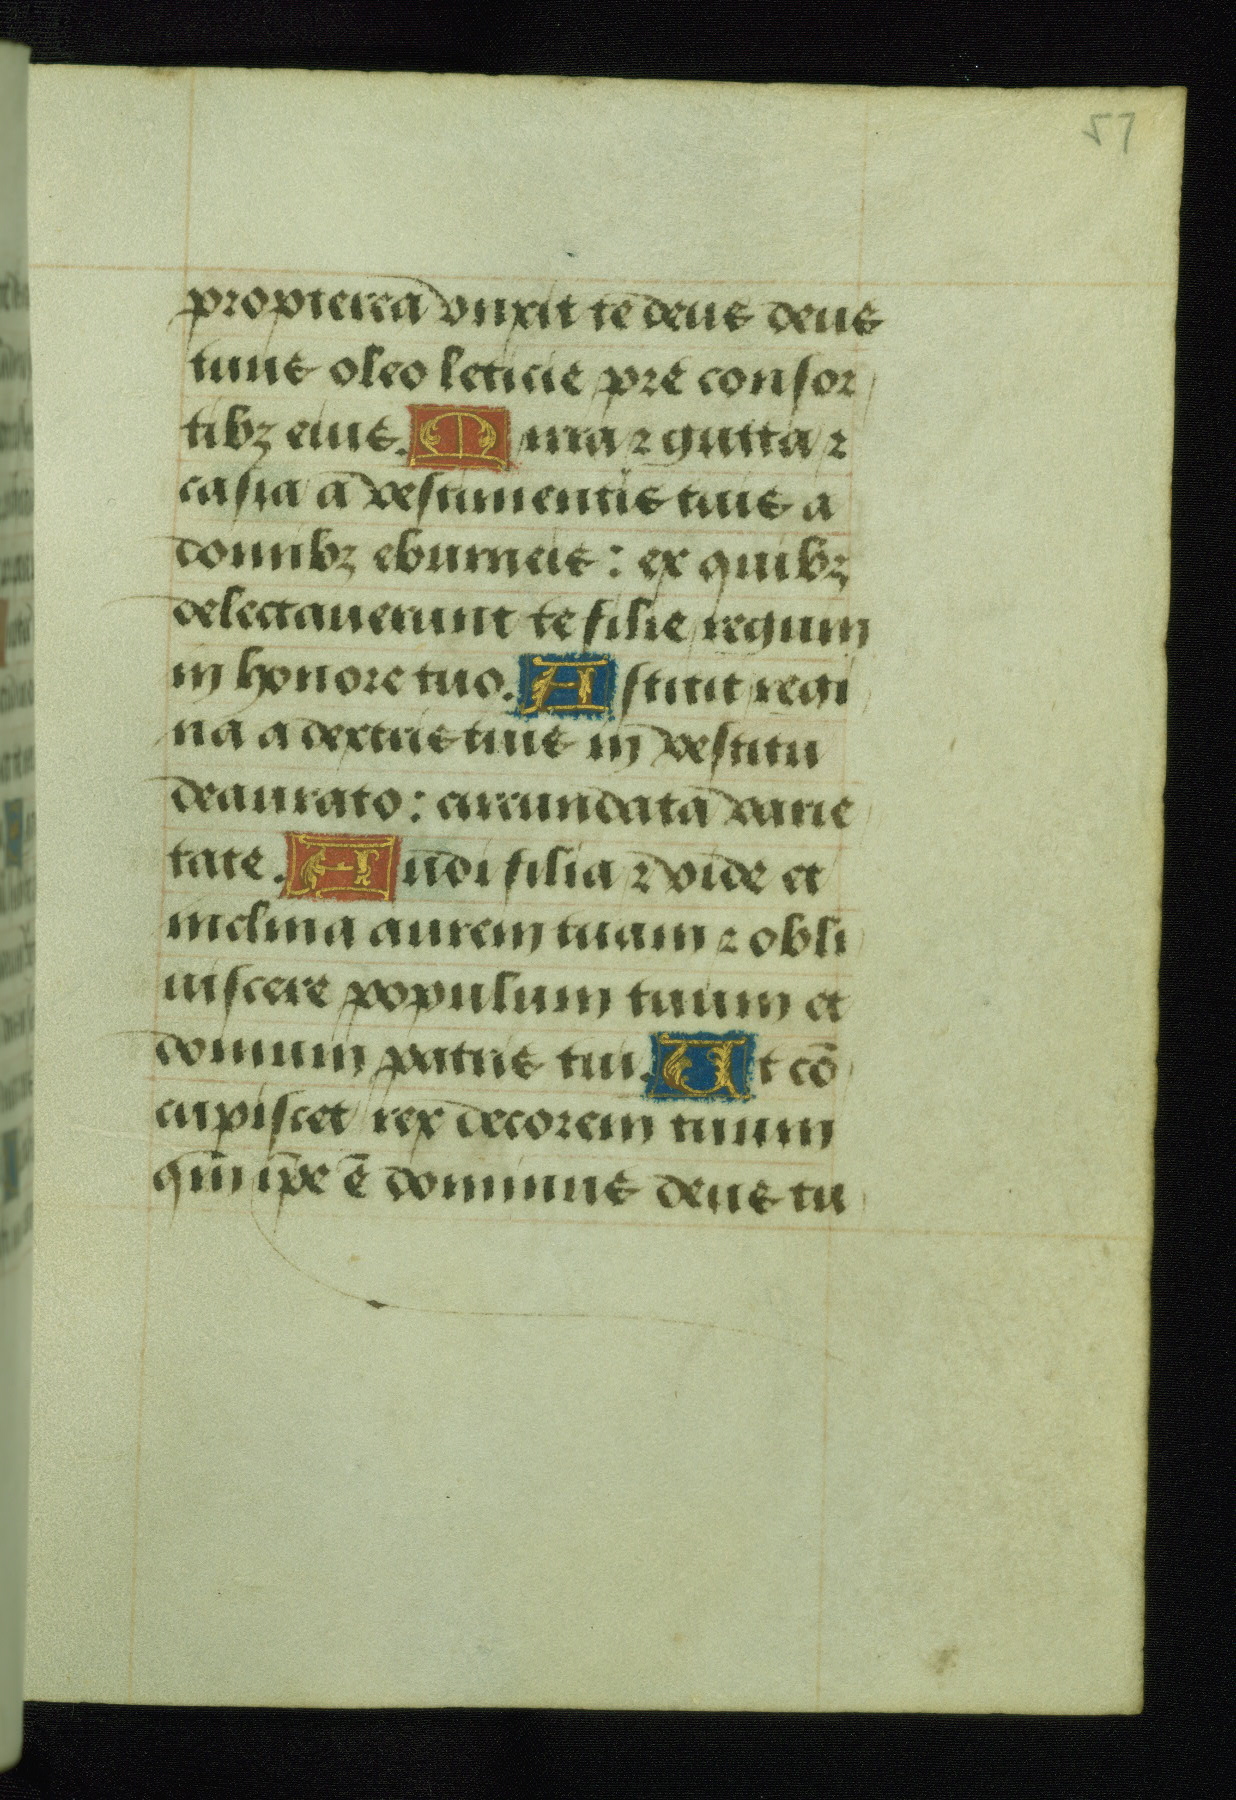 57
propterea vnxit te deus deus
tuus oleo leticie pre consor
tibꝫ eius. Mirra ⁊ gutta ⁊
casia a vestimentis tuis a
domibꝫ eburneis: ex quibꝫ
delectauerunt te filie regum
in honore tuo. Astitit regi
na a dextris tuis in vestitu
deaurato: circundata varie
tate. Audi filia ⁊ vide et
inclina aurem tuam ⁊ obli
uiscere populum tuum et
domum patris tui. Ut cō
cupiscet rex decorem tuum
qm̄ ip̄e ē dominus deus tu